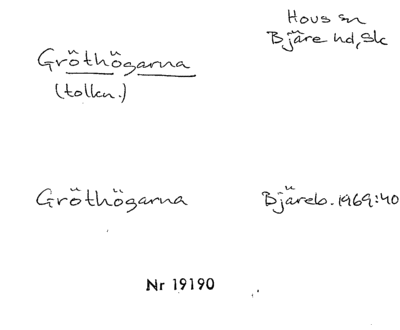 Hous sn
Bjäre hd, Sk
Gröthögarna
(tolkn.)
Gröthögarna
Bjäreb. 1969:40
Nr 19190